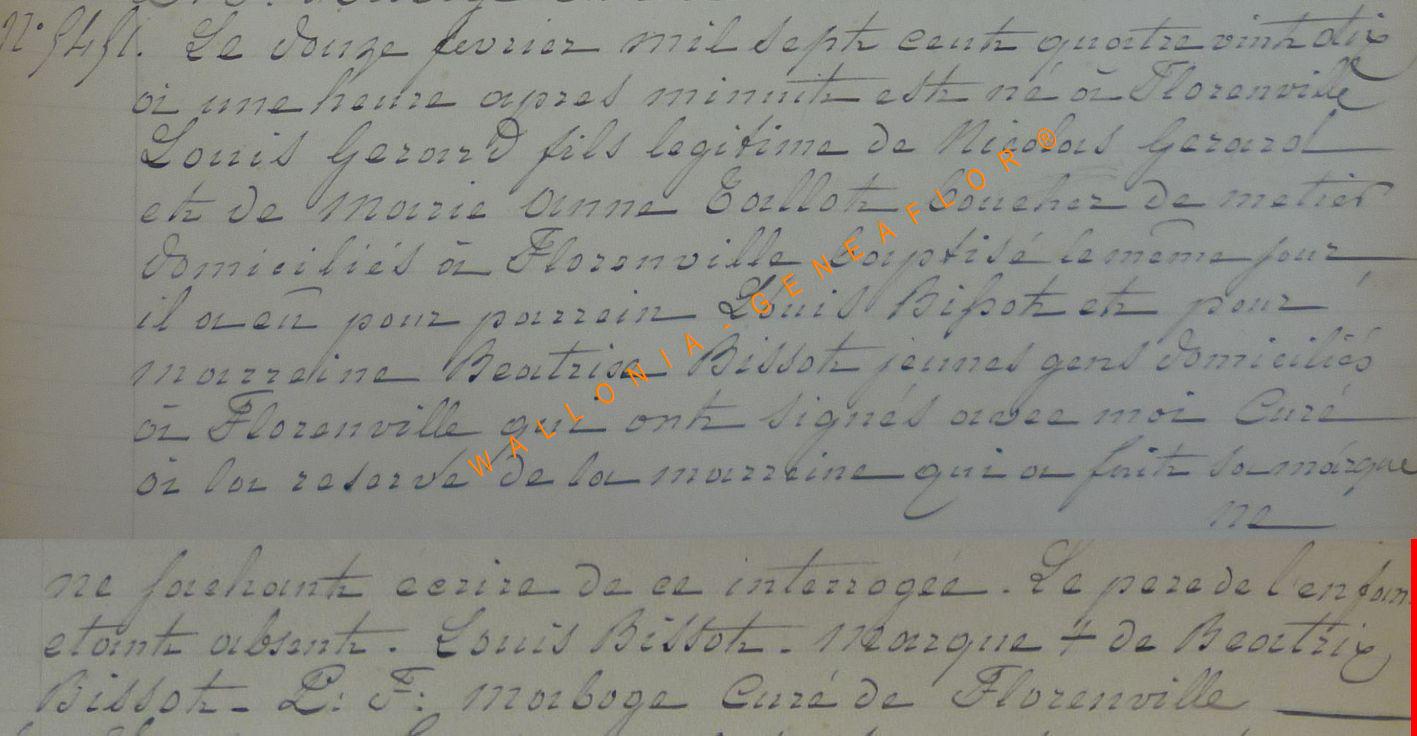 N° 5451. Le douze fevrier mil sept cent quatre vint dix
à une heure apres minuit est né à Florenville
Louis Gerard fils legitime de Nicolas Gerard
et de Marie Anne Tallot boucher de metier
domiciliés à Florenville baptisé le même jour
il a eû pour parrein Louis Bissot et pour
marreine Beatrix Bissot jeunes gens domiciliés
à Florenville qui ont signés avec moi Curé
à la reserve de la marreine qui a fait sa marque
ne
ne sachant écrire de ce interrogée. Le pere de l'enfan
etant absent. Louis Bissot. Marque + de Beatrix
Bissot - P: F: Maboge Curé de Florenville
WALLONIA-GENEAFLOR®